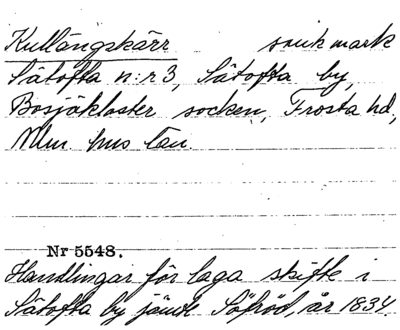 Kullängskärr sank mark
Sätofta n:r 3, Sätofta by,
Bosjökloster socken, Frosta hd,
Mlm. hus län.
Nr 5548.
Handlingar för laga skifte i
Sätofta by jämte Sjöröd, år 1834.